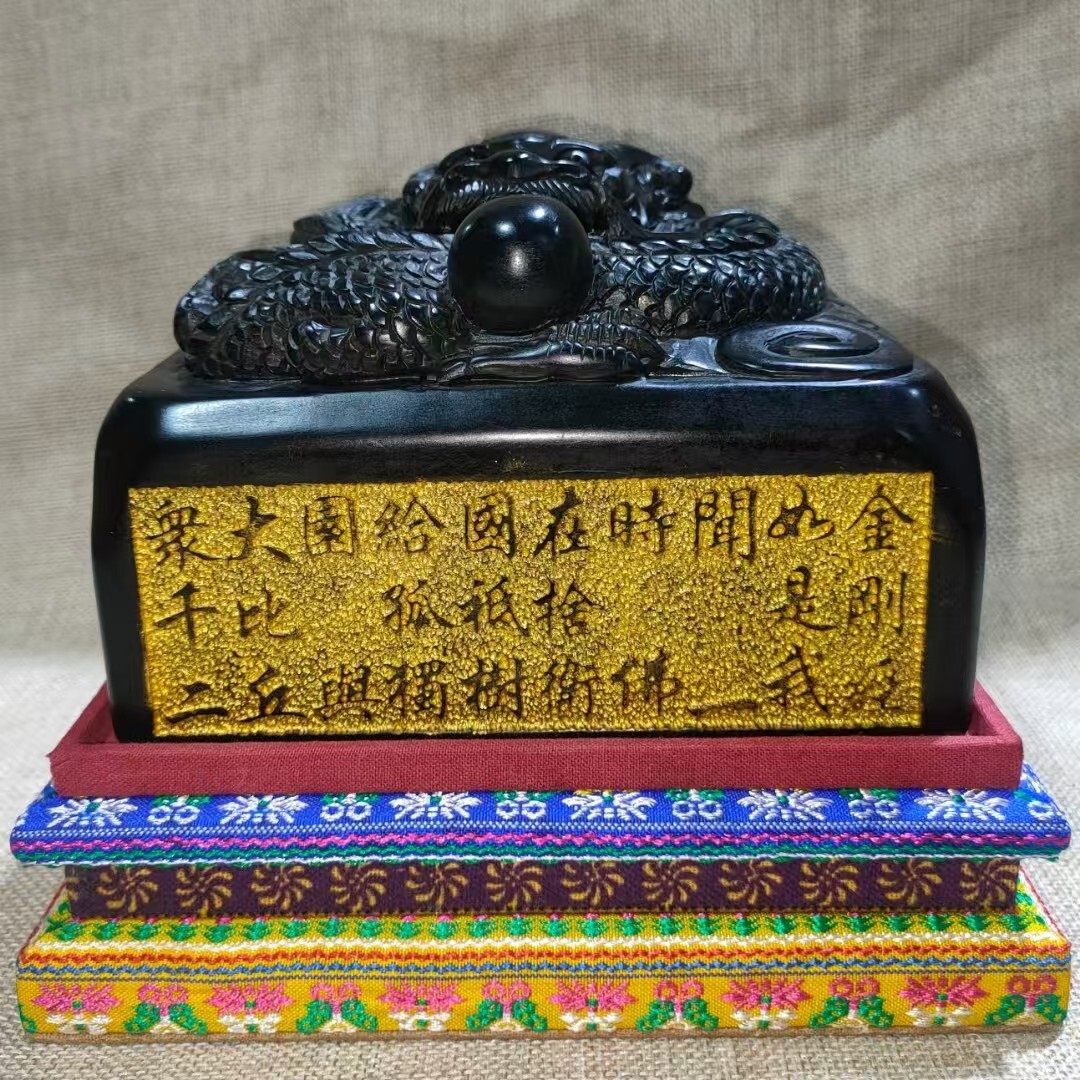 金剛經
如是我
聞一
時佛
在捨衛
國祗樹
給孤獨
園與
大比丘
眾千二